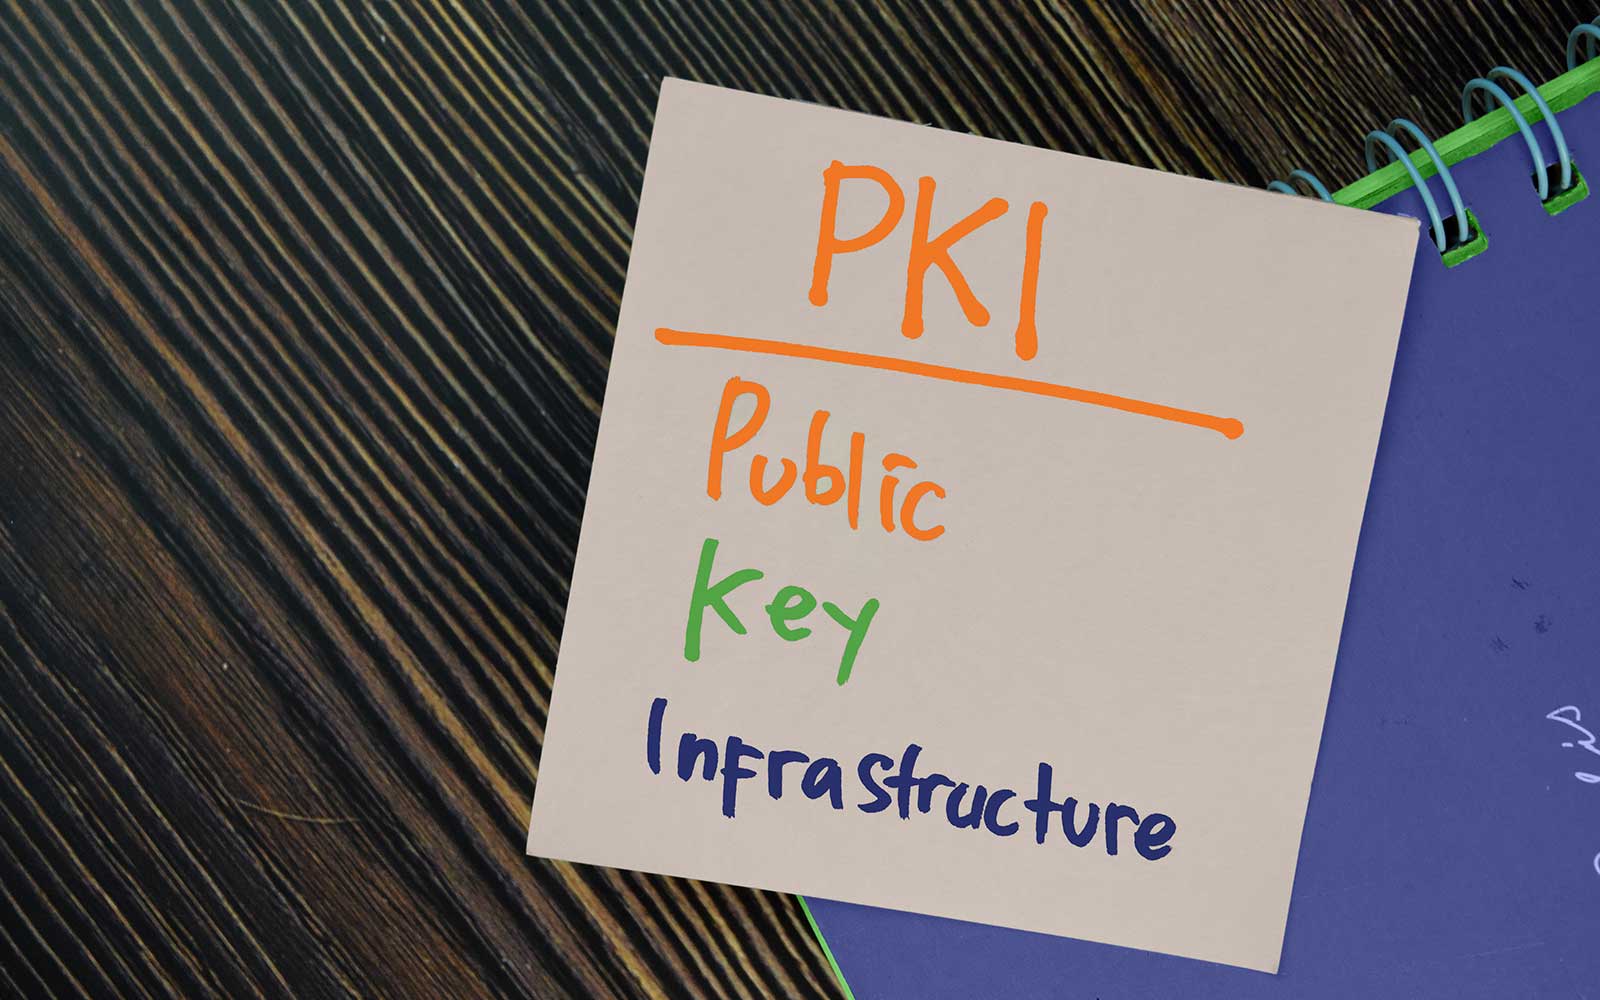 PKI
Public
Key
Infrastructure